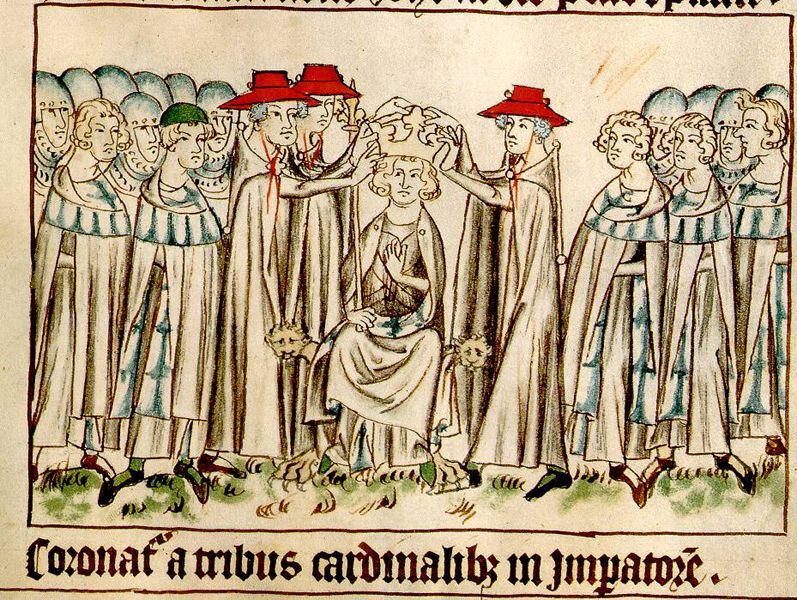 Coronat᷒ a tribus cardinalibꝫ in Imp̲atorē.